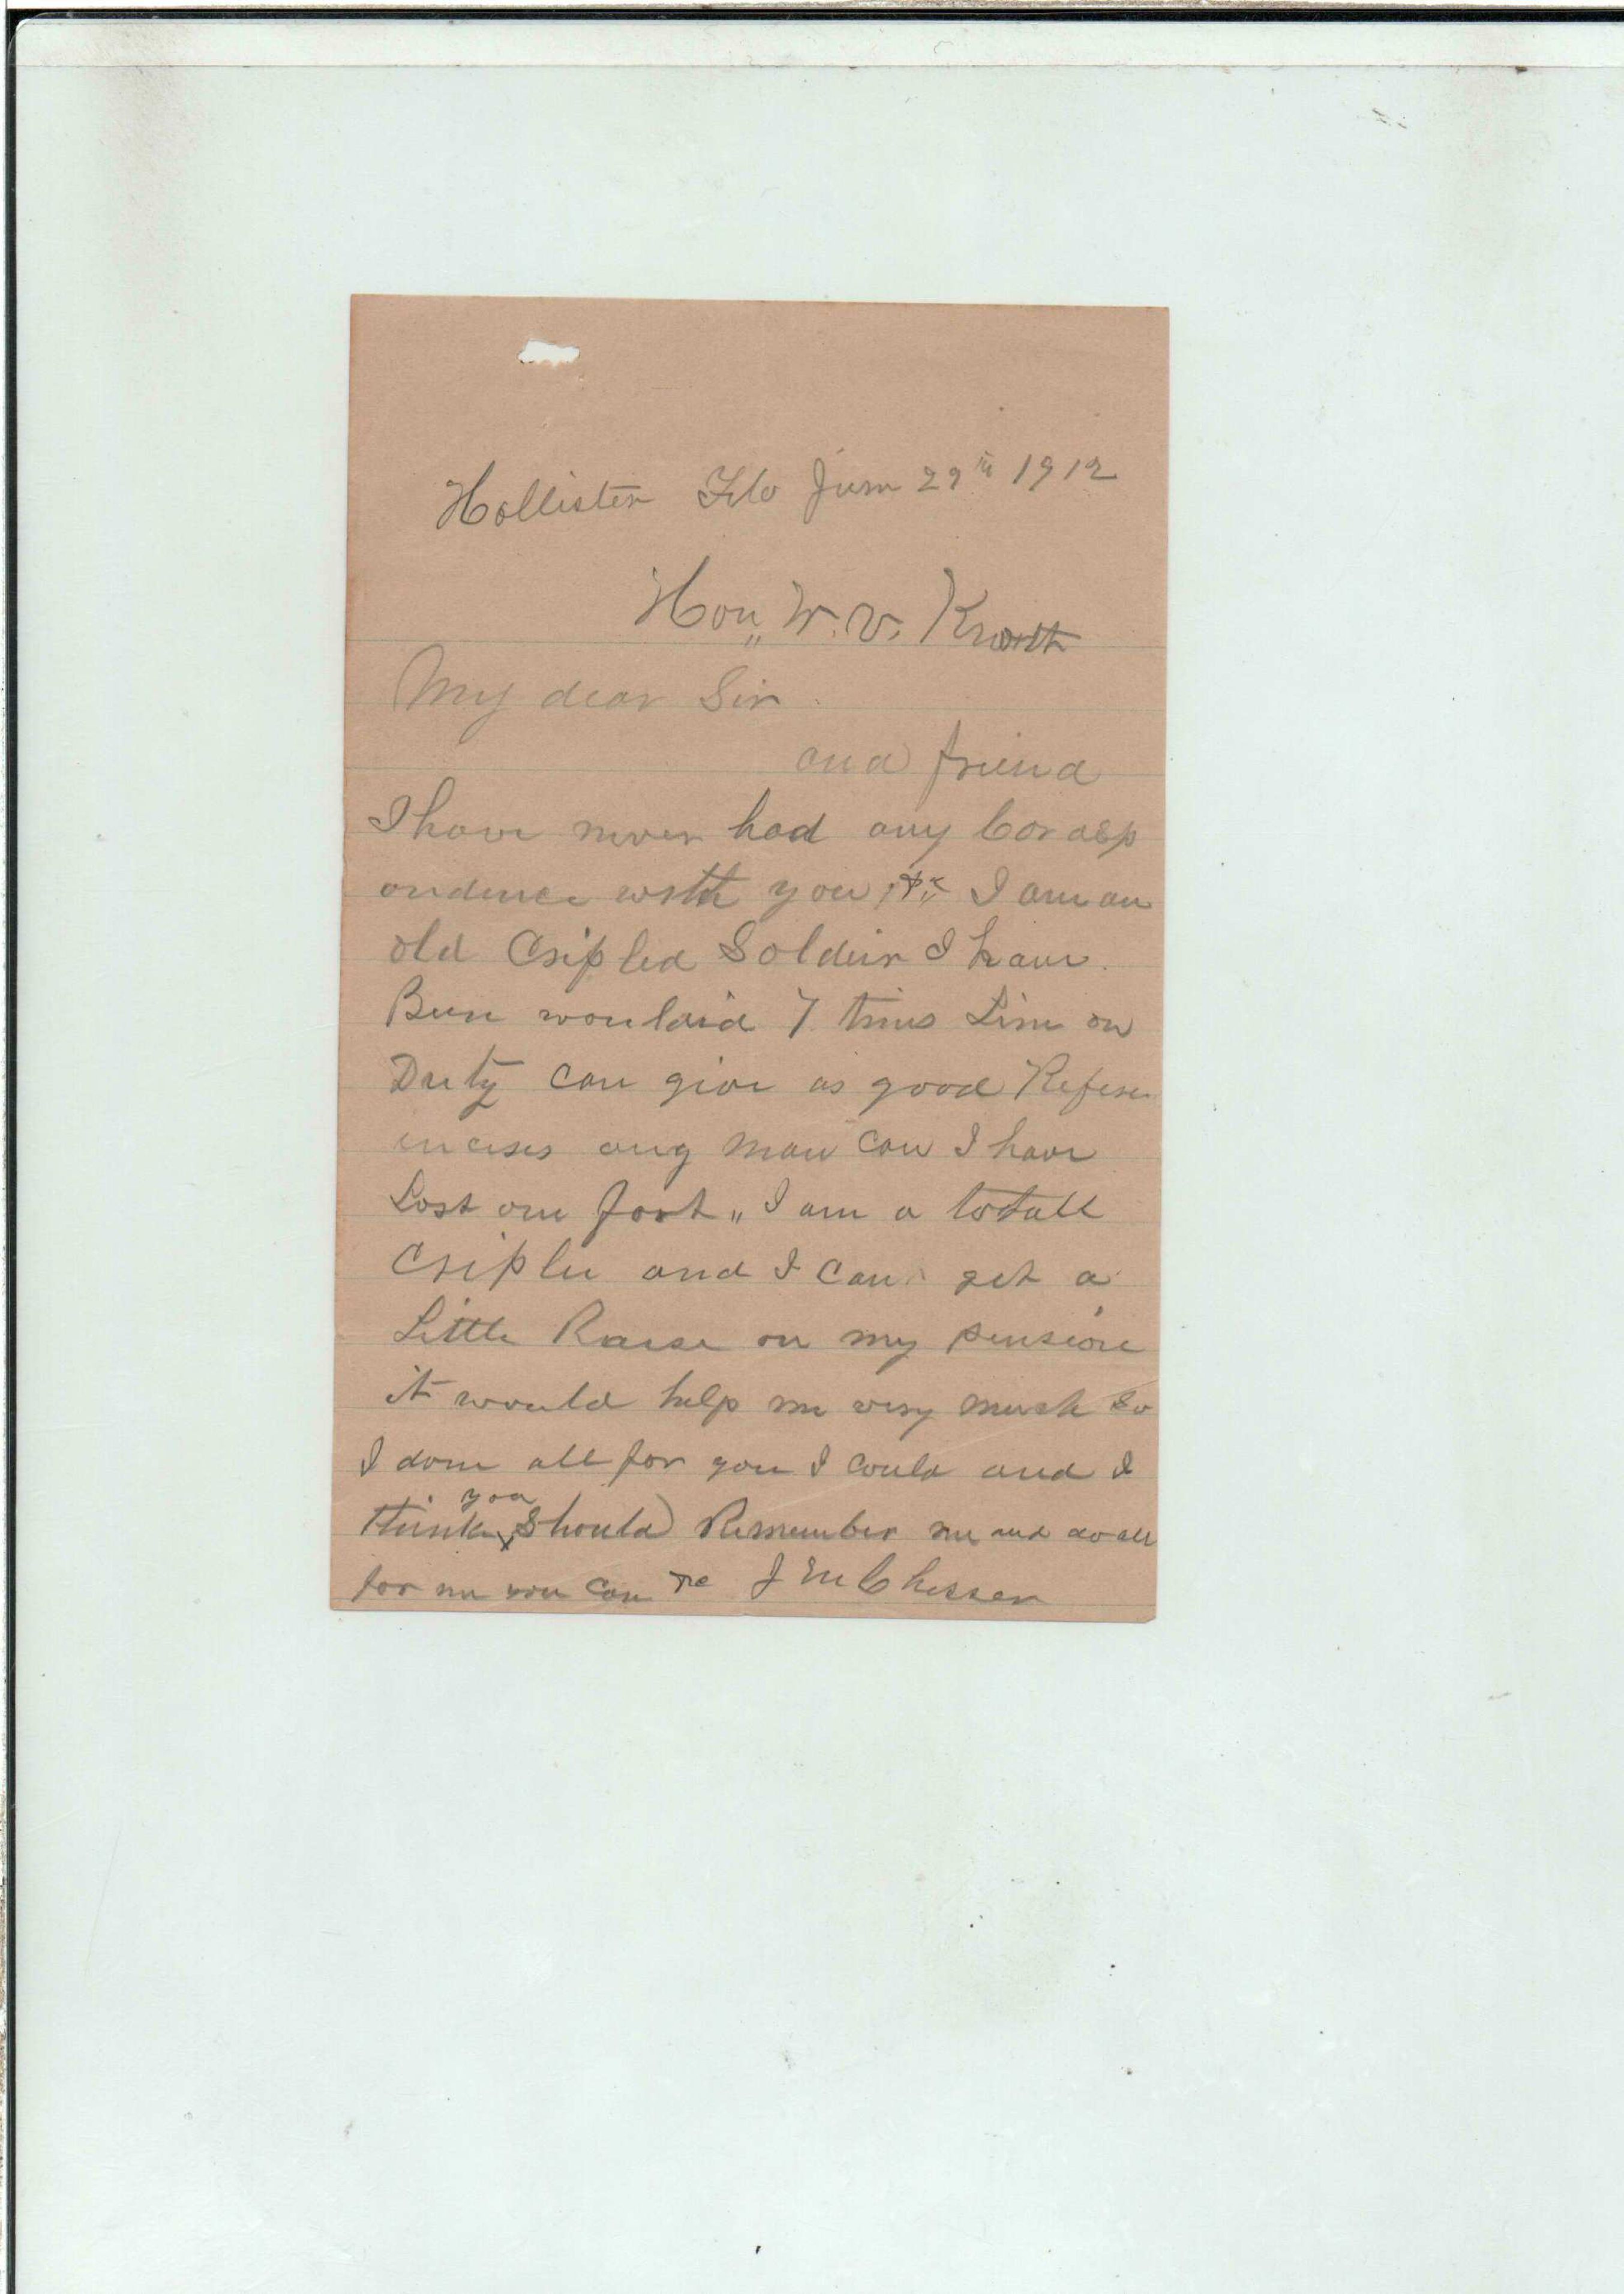 Hollister Fla June 29th 1912
Hon,, W. V. Knott
My dear Sir
and friend
I have never had any Coraesp
ondence with you I am an
old Cripled Soldier I have
Been 7 times Line on
Duty can give as good Referr
encises any man can I have
Lost one foot ,, I am a totall
Criple and I can get a
Little Raise on my pension
it would help me very much So
I done all for you I could and I
think you Should Remember me and do all
for me you can J M Chesser